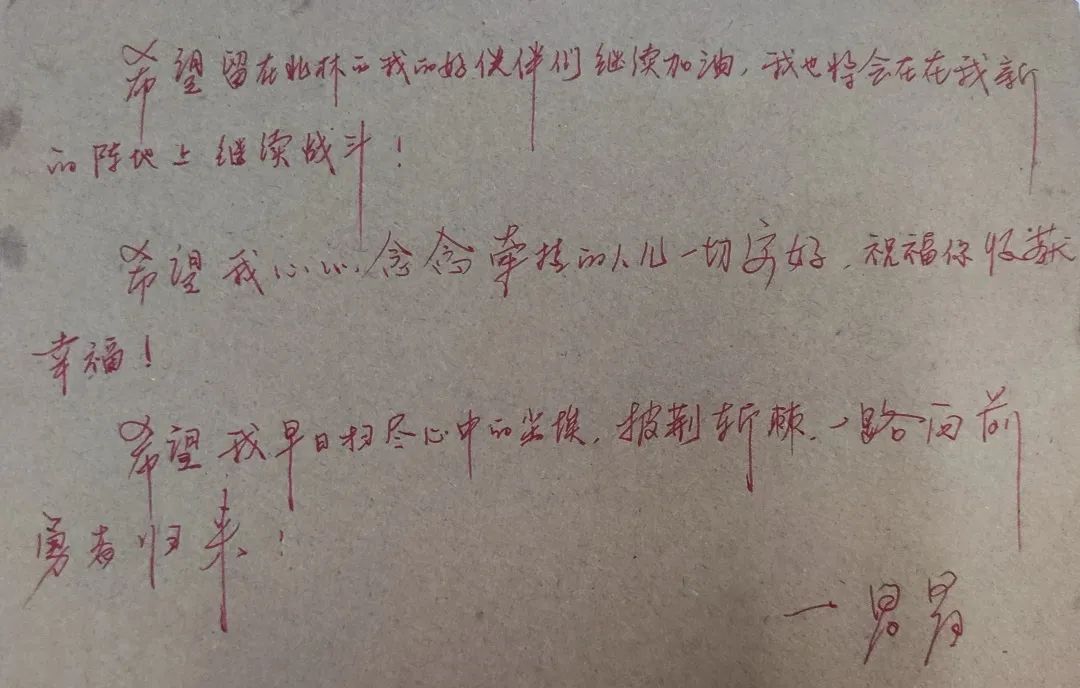 希望留在北林的我的好伙伴们继续加油，我也将会在在我新
的阵地上继续战斗！
希望我心心念念牵挂的人儿一切安好，祝福你收获
幸福！
希望我早日扫尽心中的尘埃，披荆斩棘，一路向前
勇者归来！
一